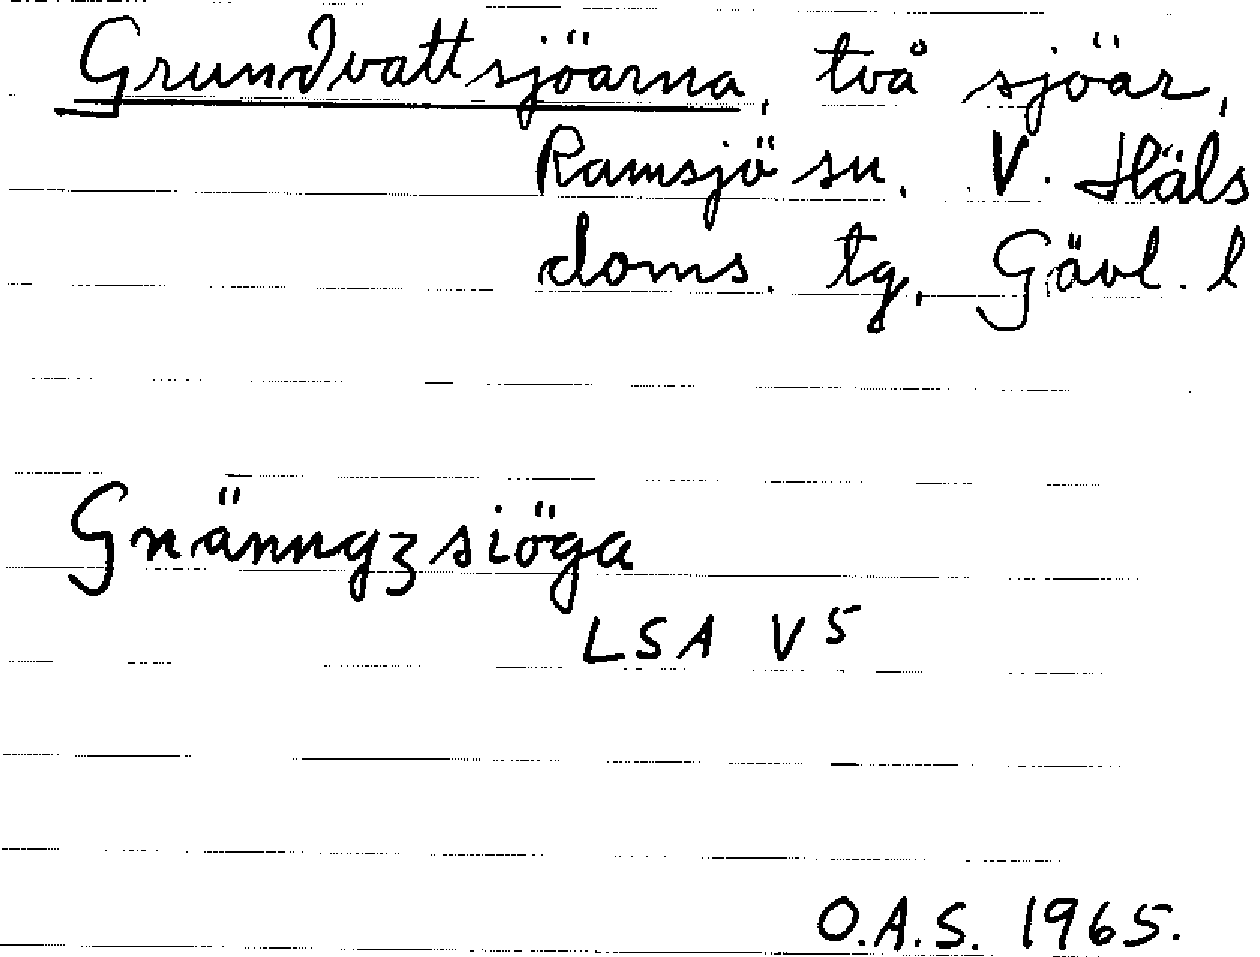 Grundvattsjöarna, två sjöar,
Ramsjö sn. V. Häls
doms. tg, Gävl. l
Gnänngzsiöga
LSA V5
O.A.S. 1965.